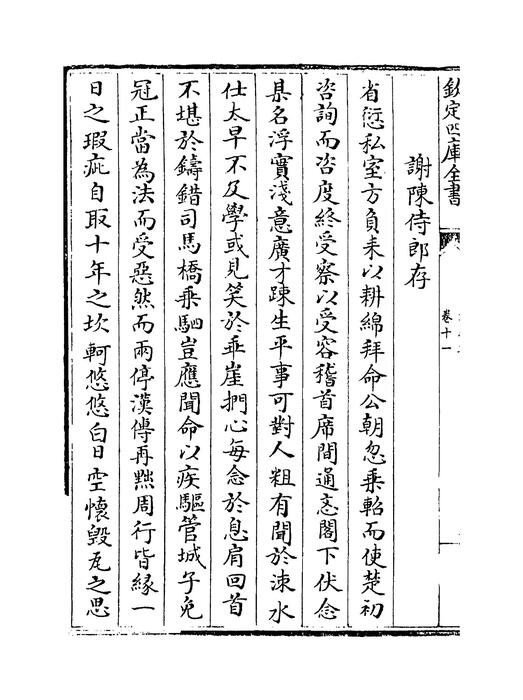 欽定四庫全書
卷十一
謝陳侍郎存
省愆私室方負耒以耕綿拜命公朝忽乘軺而使楚初
咨詢而咨度終受察以受容稽首席間通忱閤下伏念
某名浮實淺意廣才踈生平事可對人粗有聞於涑水
仕太早不及學或見笑於乖崖捫心每念於息肩回首
不堪於鑄錯司馬橋乘駟豈應聞命以疾驅管城子免
冠正當為法而受惡然而兩停漢傳再黜周行皆緣一
日之瑕疵自取十年之坎軻悠悠白日空懷毀瓦之思